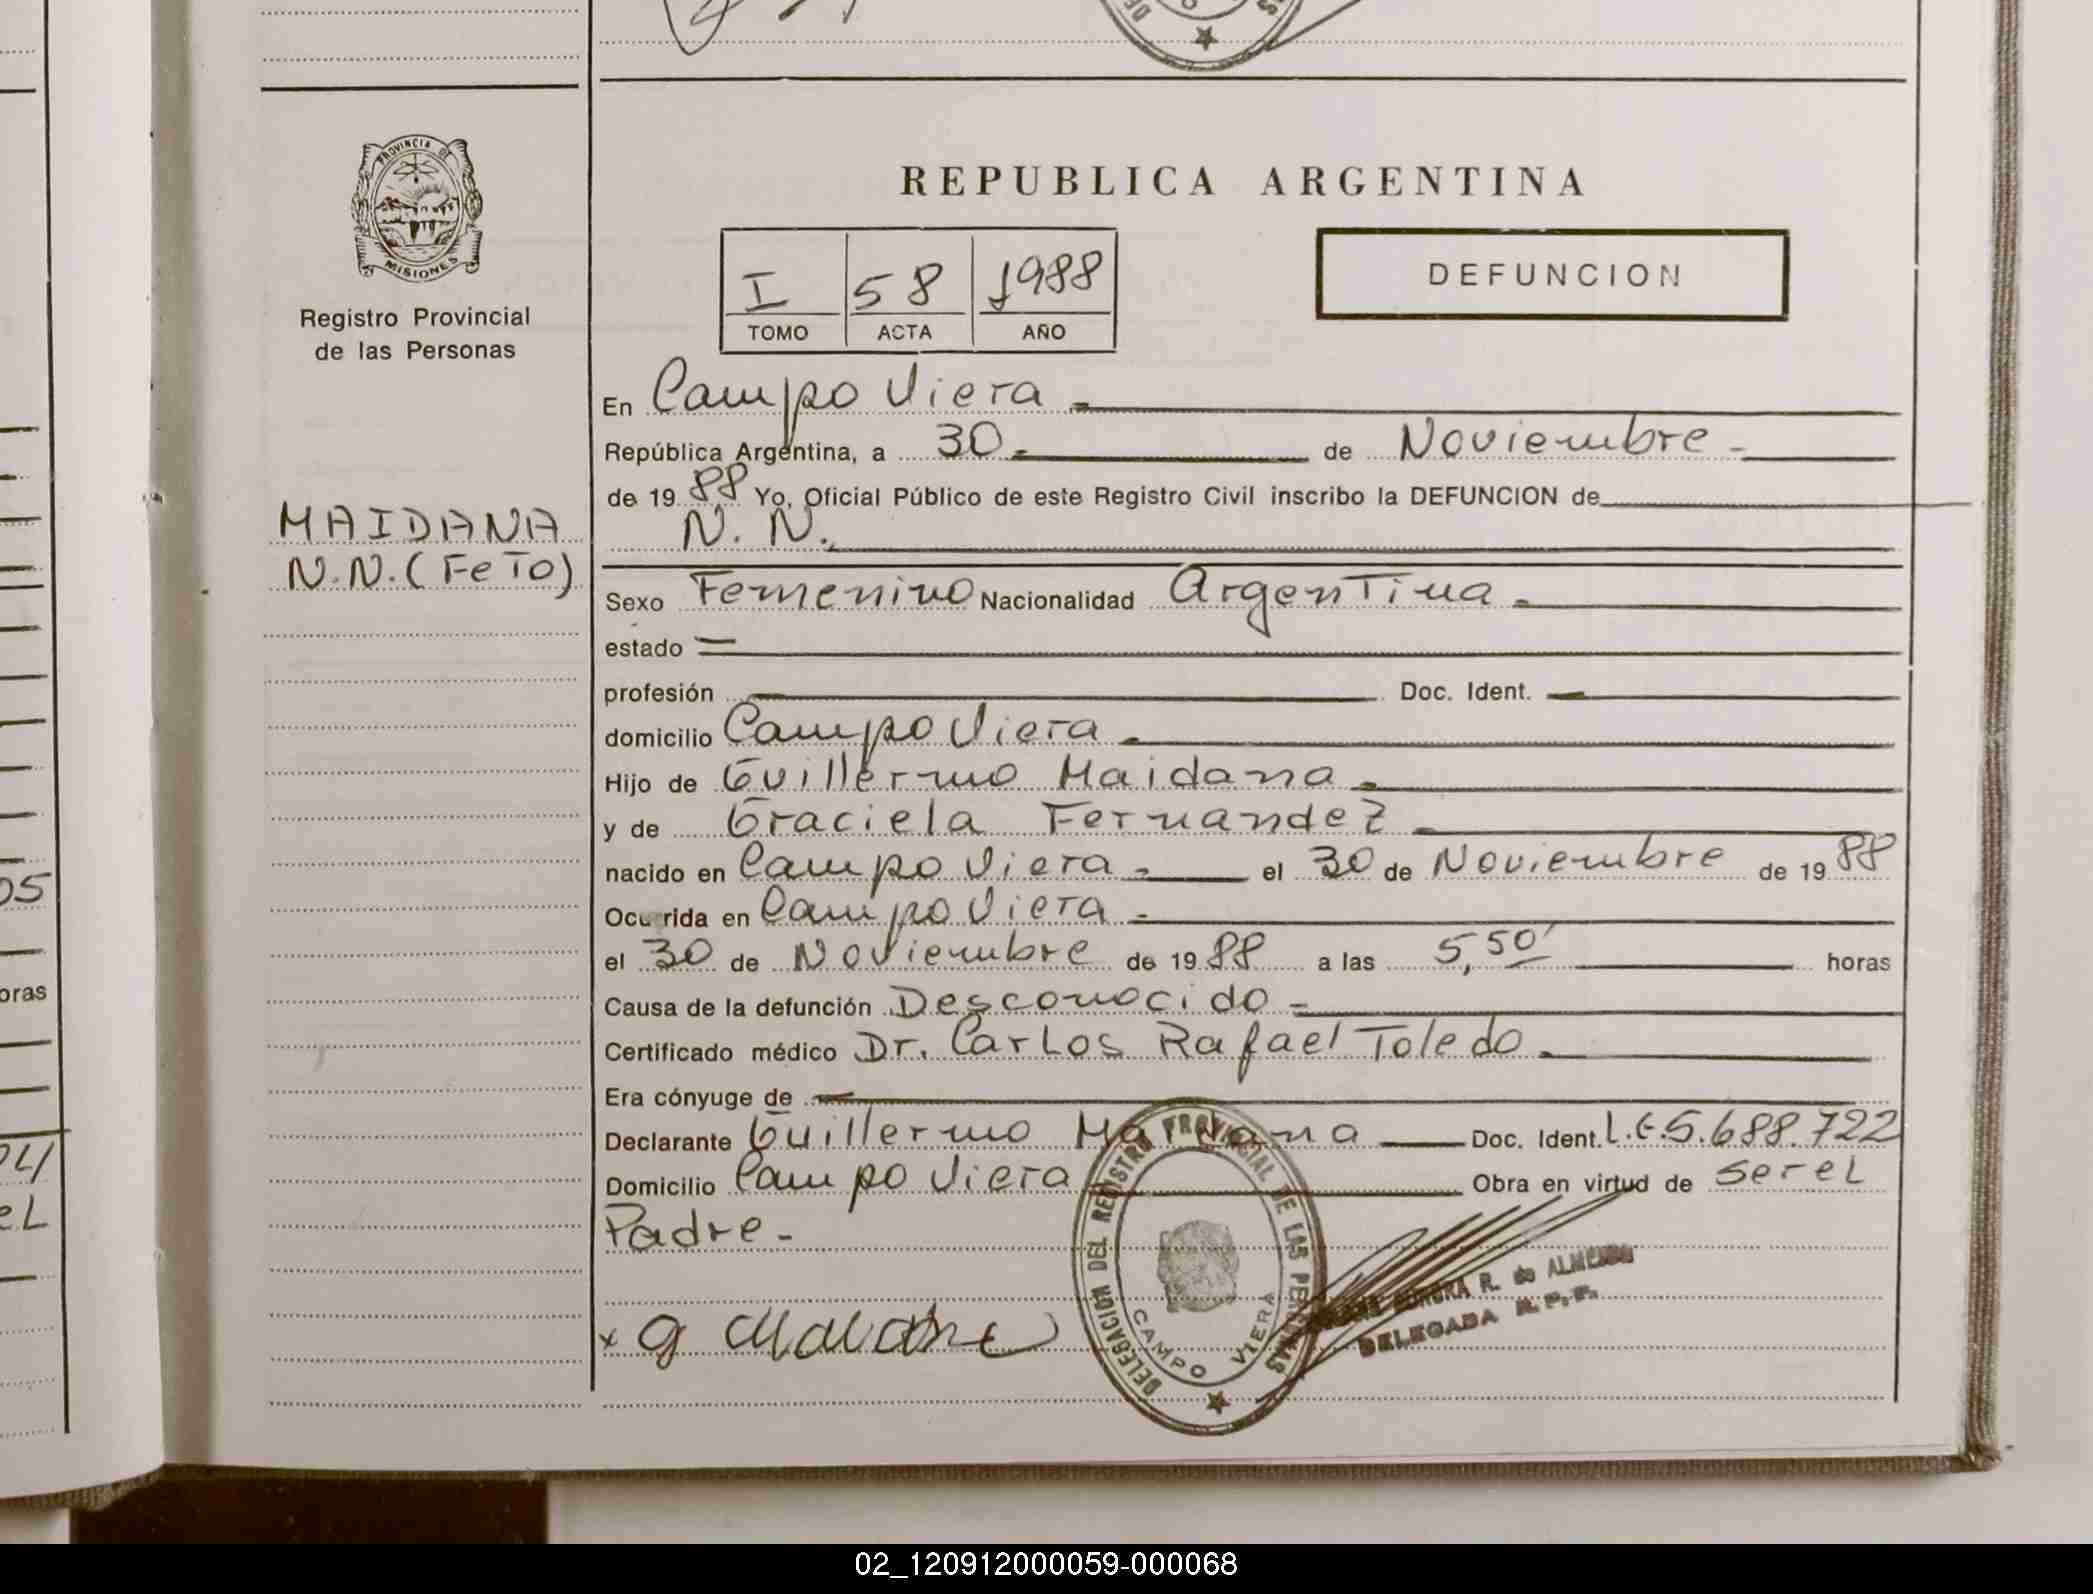 REPUBLICA ARGENTINA
PROVINCIA DE
MISIONES
Registro Provincial
de las Personas
I 58 1988
TOMO ACTA AÑO
DEFUNCION
MAIDANA
N.N. (FeTo)
En Campo Viera
República Argentina, a 30 de Noviembre
de 19 88 Yo, Oficial Público de este Registro Civil inscribo la DEFUNCION de
N. N.
Sexo Femenino Nacionalidad Argentina
estado
profesión Doc. Ident.
domicilio Campo Viera
Hijo de Guillermo Maidana
y de Graciela Fernandez
nacido en Campo Viera el 30 de Noviembre de 19 88
Ocurrida en Campo Viera
el 30 de Noviembre de 19 88 a las 5,50' horas
Causa de la defunción Desconocido
Certificado médico Dr. Carlos Rafael Toledo
Era cónyuge de
Declarante Guillermo Maidana Doc. Ident. L.E. 5.688.722
Domicilio Campo Viera Obra en virtud de serel
Padre
DELEGACION DEL REGISTRO PROVINCIAL DE LAS PERSONAS
CAMPO VIERA
R. de ALMEIDA
DELEGADA R.P.P.
05
oras
eL
02_120912000059-000068